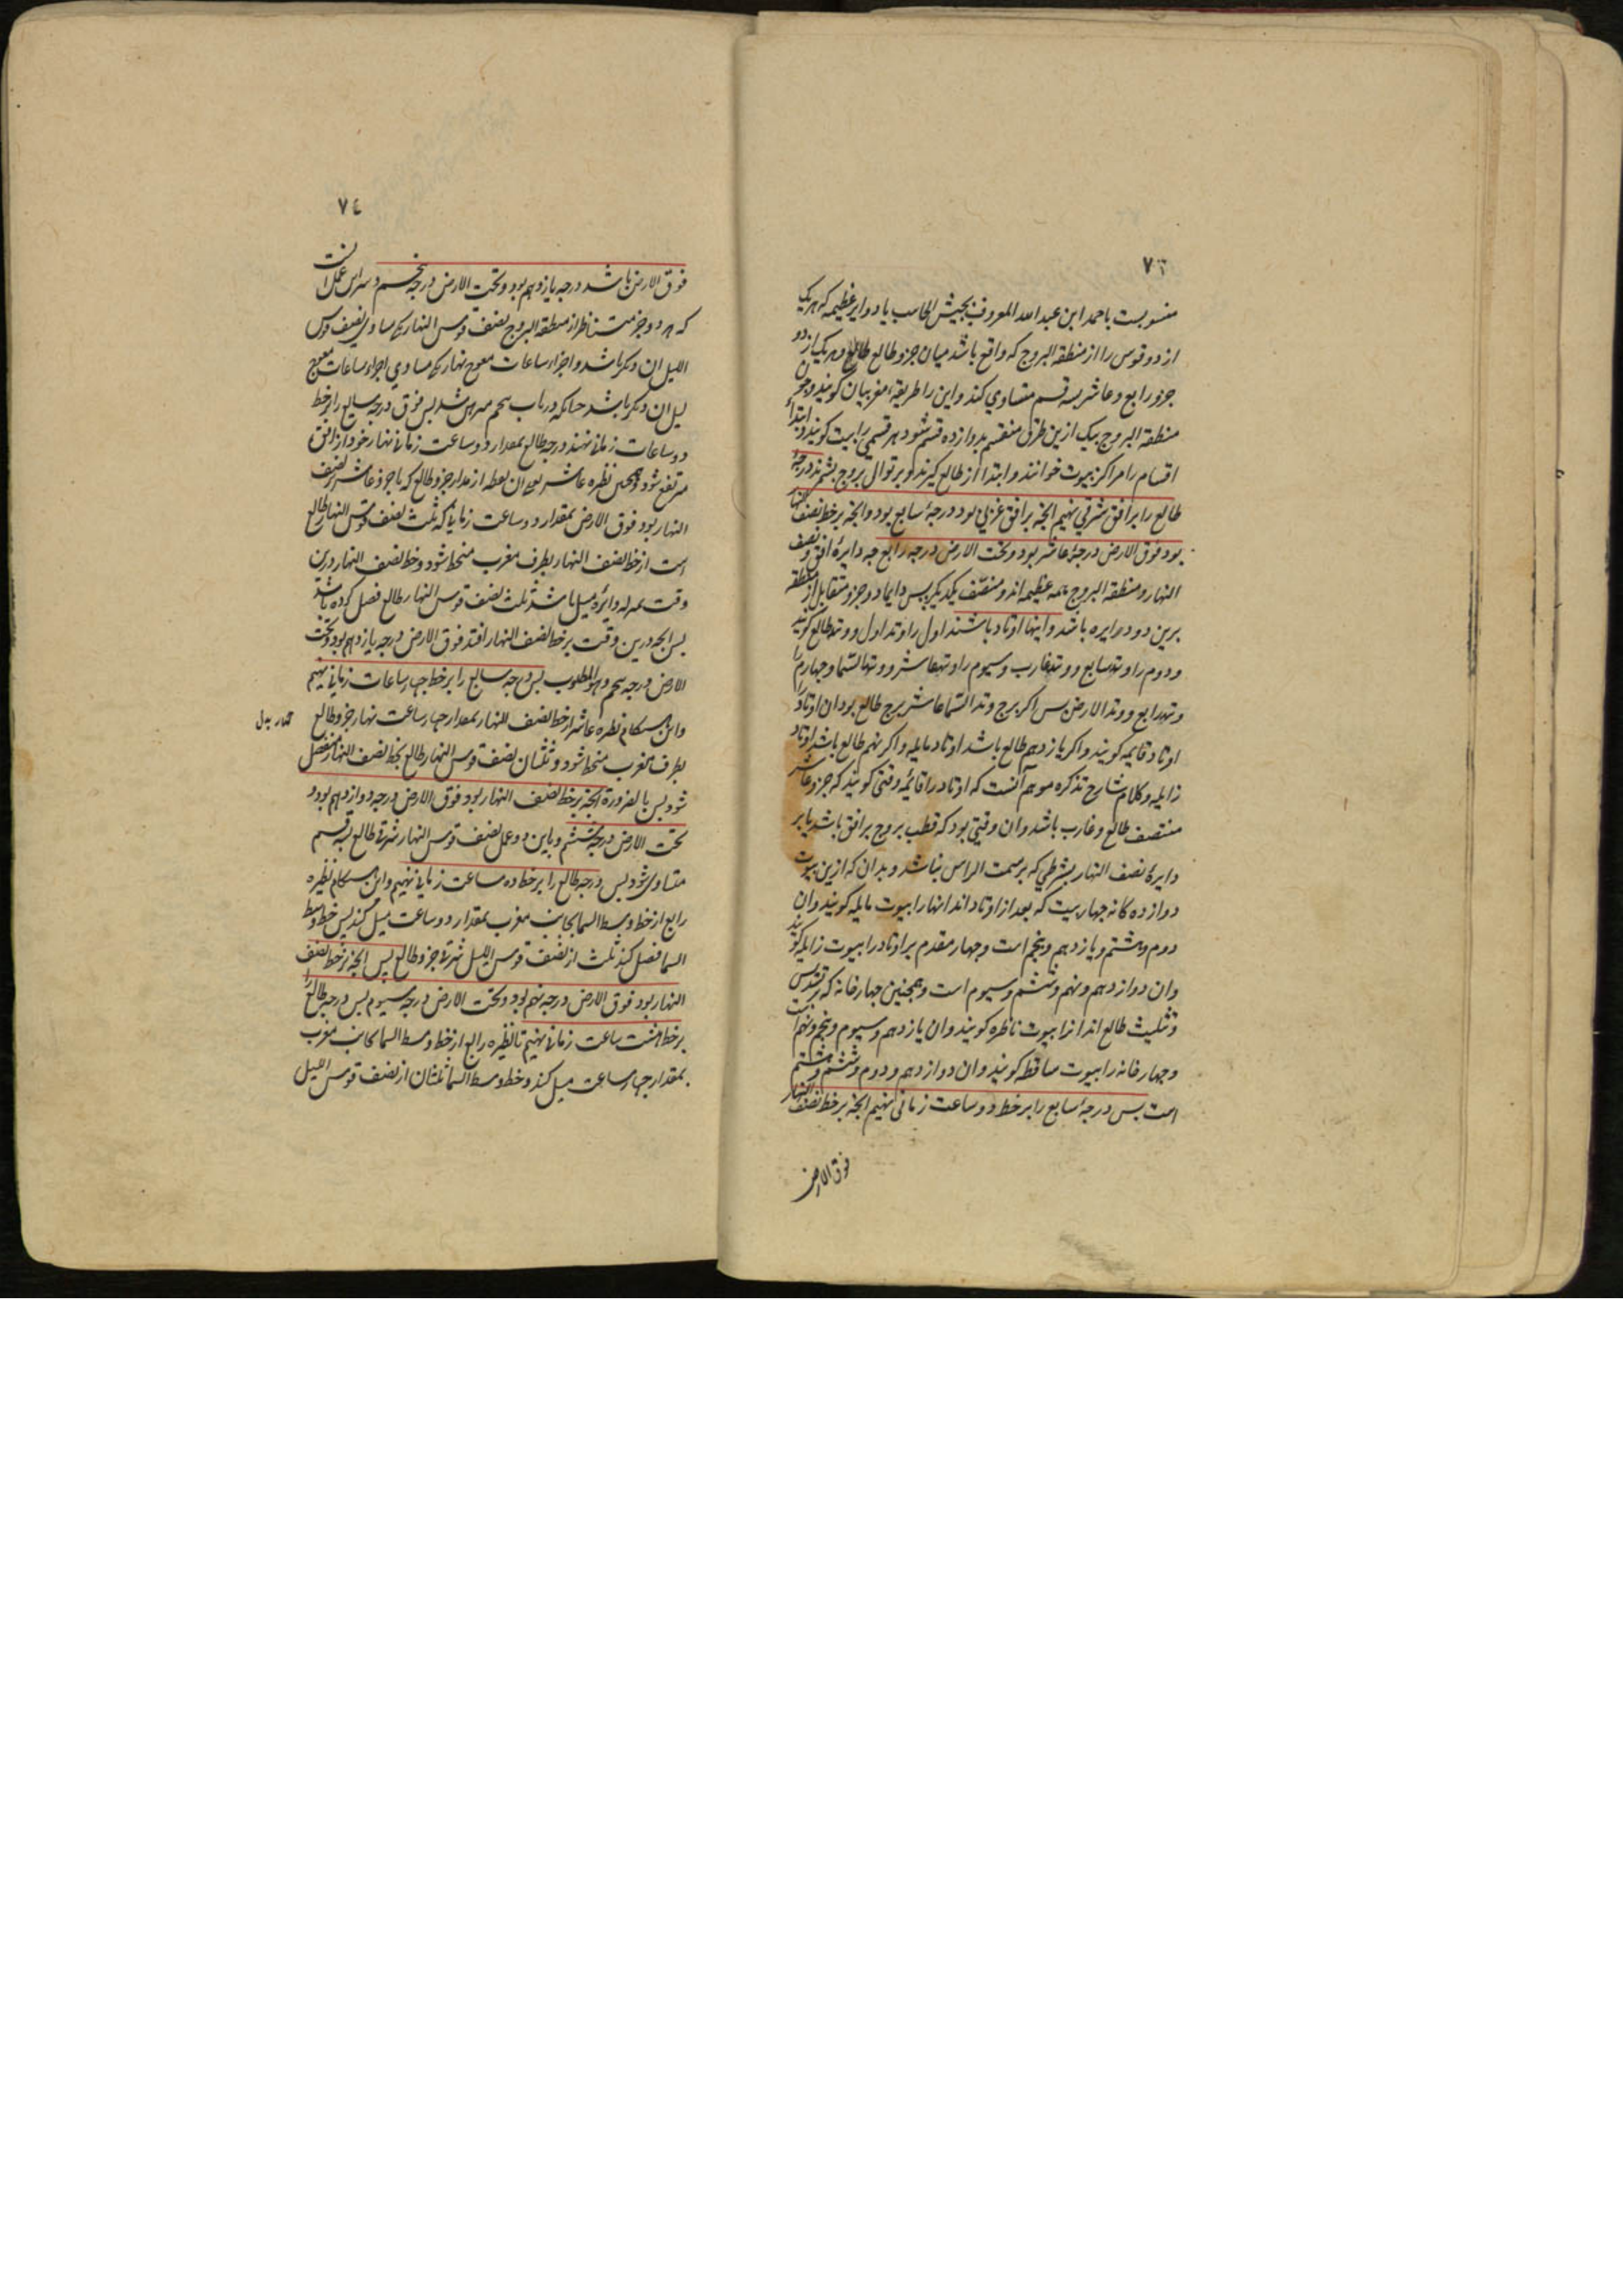 ٧٣
منسوبست باحمد ابن عبد الله المعروف بجیش الحاسب یا دوایر عظیمه که هریک
از دو قوس را از منطقة البروج که واقع باشد میان جزو طالع و هریک از دو
جزو رابع و عاشر بسه قسم متساوی کند و این را طریقهٔ مغربیان کویند و چون
منطقة البروج بیک ازین طرق منقسم بدوازده قسم شود هر قسمی را بیت کویند و ابتداء
اقسام را مراکز بیوت خوانند و ابتدا از طالع کیرند و بر توالی بروج بشمرند درجهٔ
طالع را بر افق شرقی نهیم انچه بر افق غربی بود درجهٔ سابع بود و انچه بر خط نصف النهار
بود فوق الارض درجهٔ عاشر بود و تحت الارض درجه رابع چه دایرهٔ افق و نصف
النهار و منطقة البروج همه عظیمه اند و منصّف یکدیکر پس دایما دو جزو متقابل از منطقه
برین دو دایره باشد و اینها اوتاد باشند اول را وتد اول و وتد طالع کویند
و دوم را وتد سابع و وتد غارب و سیوم را وتد عاشر و وتد السّما و چهارم را
وتد رابع و وتد الارض پس اکر برج وتد السّما عاشر برج طالع بود ان اوتاد را
اوتاد قایمه کویند و اکر یازدهم طالع باشد اوتاد مایله و اکر نهم طالع باشد اوتاد
زایله و کلام شارح تذکره موهم آنست که اوتاد را قایمه وقتی کویند که جزو عاشر
منتصف طالع و غارب باشد و ان وقتی بود که قطب بروج بر افق باشد یا بر
دایرهٔ نصف النهار بشرطی که بر سمت الراس نباشد و بدان که ازین بیوت
دوازده کانه چهار بیت که بعد از اوتاد اند انها را بیوت مایله کویند و ان
دوم و هشتم و یازدهم و پنجم است و چهار مقدم بر اوتاد را بیوت زایله کویند
و ان دوازدهم و نهم و ششم و سیوم است و همچنین چهار خانه که بر تسدیس
و تثلیث طالع اند انرا بیوت ناظره کویند و ان یازدهم و سیوم و پنجم و نهم است
و چهار خانه را بیوت ساقطه کویند و ان دوازدهم و دوم و ششم و هشتم
است پس درجهٔ سابع را بر خط دو ساعت زمانی نهیم انچه بر خط نصف النهار
فوق الارض
٧٤
فوق الارض باشد درجه یازدهم بود و تحت الارض درجه پنجم و سر این عمل انست
که هر دو جزو متناظر از منطقة البروج نصف قوس النهار یکی مساوی نصف قوس
اللیل ان دیکر باشد و اجزاء ساعات معوج نهار یکی مساوی اجزاء ساعات معوج
لیل ان دیکر باشد چنانکه در باب پنجم مبرهن شد پس فوق درجه سابع را بر خط
دو ساعات زمانی نهند درجه طالع بمقدار دو ساعت زمانی نهار خود از افق
مرتفع شود و همچنین نظیره عاشر یعنی ان نقطه از مدار جزو طالع که با جزو عاشر بر نصف
النهار بود فوق الارض بمقدار دو ساعت زمانی که ثلث نصف قوس النهار طالع
است از خط نصف النهار بطرف مغرب منحط شود و خط نصف النهار درین
وقت بمنزله دایرهٔ میل باشد ثلث نصف قوس النهار طالع فصل کرده باشد
پس انچه درین وقت بر خط نصف النهار افتد فوق الارض درجه یازدهم بود و تحت
الارض درجه پنجم و هو المطلوب پس درجه سابع را بر خط چهار ساعات زمانی نهیم
و این هنکام نظیره عاشر از خط نصف النهار بمقدار چهار ساعت نهار جزو طالع
بطرف مغرب منحط شود و ثلثان نصف قوس النهار طالع بخط نصف النهار منفصل
شود پس بالضرورة انچه بر خط نصف النهار بود فوق الارض درجه دوازدهم بود و
تحت الارض درجه ششم و باین دو عمل نصف قوس النهار شرقی طالع بسه قسم
متساوی شود پس درجه طالع را بر خط ده ساعت زمانی نهیم و این هنکام نظیره
رابع از خط وسط السما بجانب مغرب بمقدار دو ساعت میل کند پس خط وسط
السما فصل کند ثلث از نصف قوس اللیل شرقی جزو طالع پس انچه بر خط نصف
النهار بود فوق الارض درجه نهم بود و تحت الارض درجه سیوم پس درجه طالع را
بر خط هشت ساعت زمانی نهیم تا نظیره رابع از خط وسط السما بجانب مغرب
بمقدار چهار ساعت میل کند و خط وسط السما ثلثان از نصف قوس اللیل